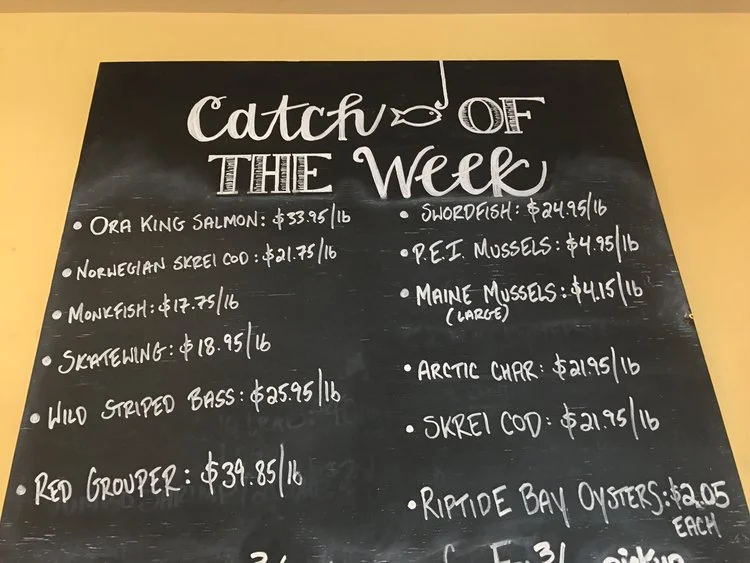 Catch OF
THE Week
• ORA KING SALMON: $33.95/lb
• NORWEGIAN SKREI COD: $21.75/lb
• MONKFISH: $17.75/lb
• SKATEWING: $18.95/lb
• WILD STRIPED BASS: $25.95/lb
• RED GROUPER: $39.85/lb
• SWORDFISH: $24.95/lb
• P.E.I. MUSSELS: $4.95/lb
• MAINE MUSSELS: $4.15/lb
(LARGE)
• ARCTIC CHAR: $21.95/lb
• SKREI COD: $21.95/lb
• RIPTIDE BAY OYSTERS: $2.05
EACH